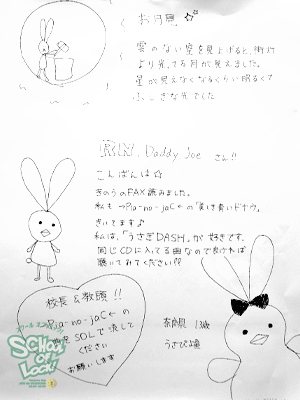 お月見
雲のない空を見上げると、街灯
より光ってる月が見えました。
星が見えなくなるくらい明るくて
ふしぎな光でした
RN. Daddy Joe さん!!
こんばんは☆
きのうのFAX読みました。
私も →Pia-no-jaC← の「美しく青きドナウ」
きいてます♪
私は、「うさぎDASH」が好きです。
同じCDに入ってる曲なので良ければ
聴いてみてください!!
校長 & 教頭 !!
→Pia-no-jaC← の
曲を SOLで流して
ください
お願いします
奈良県 13歳
うさぴょ
SCHOOL OF LOCK!